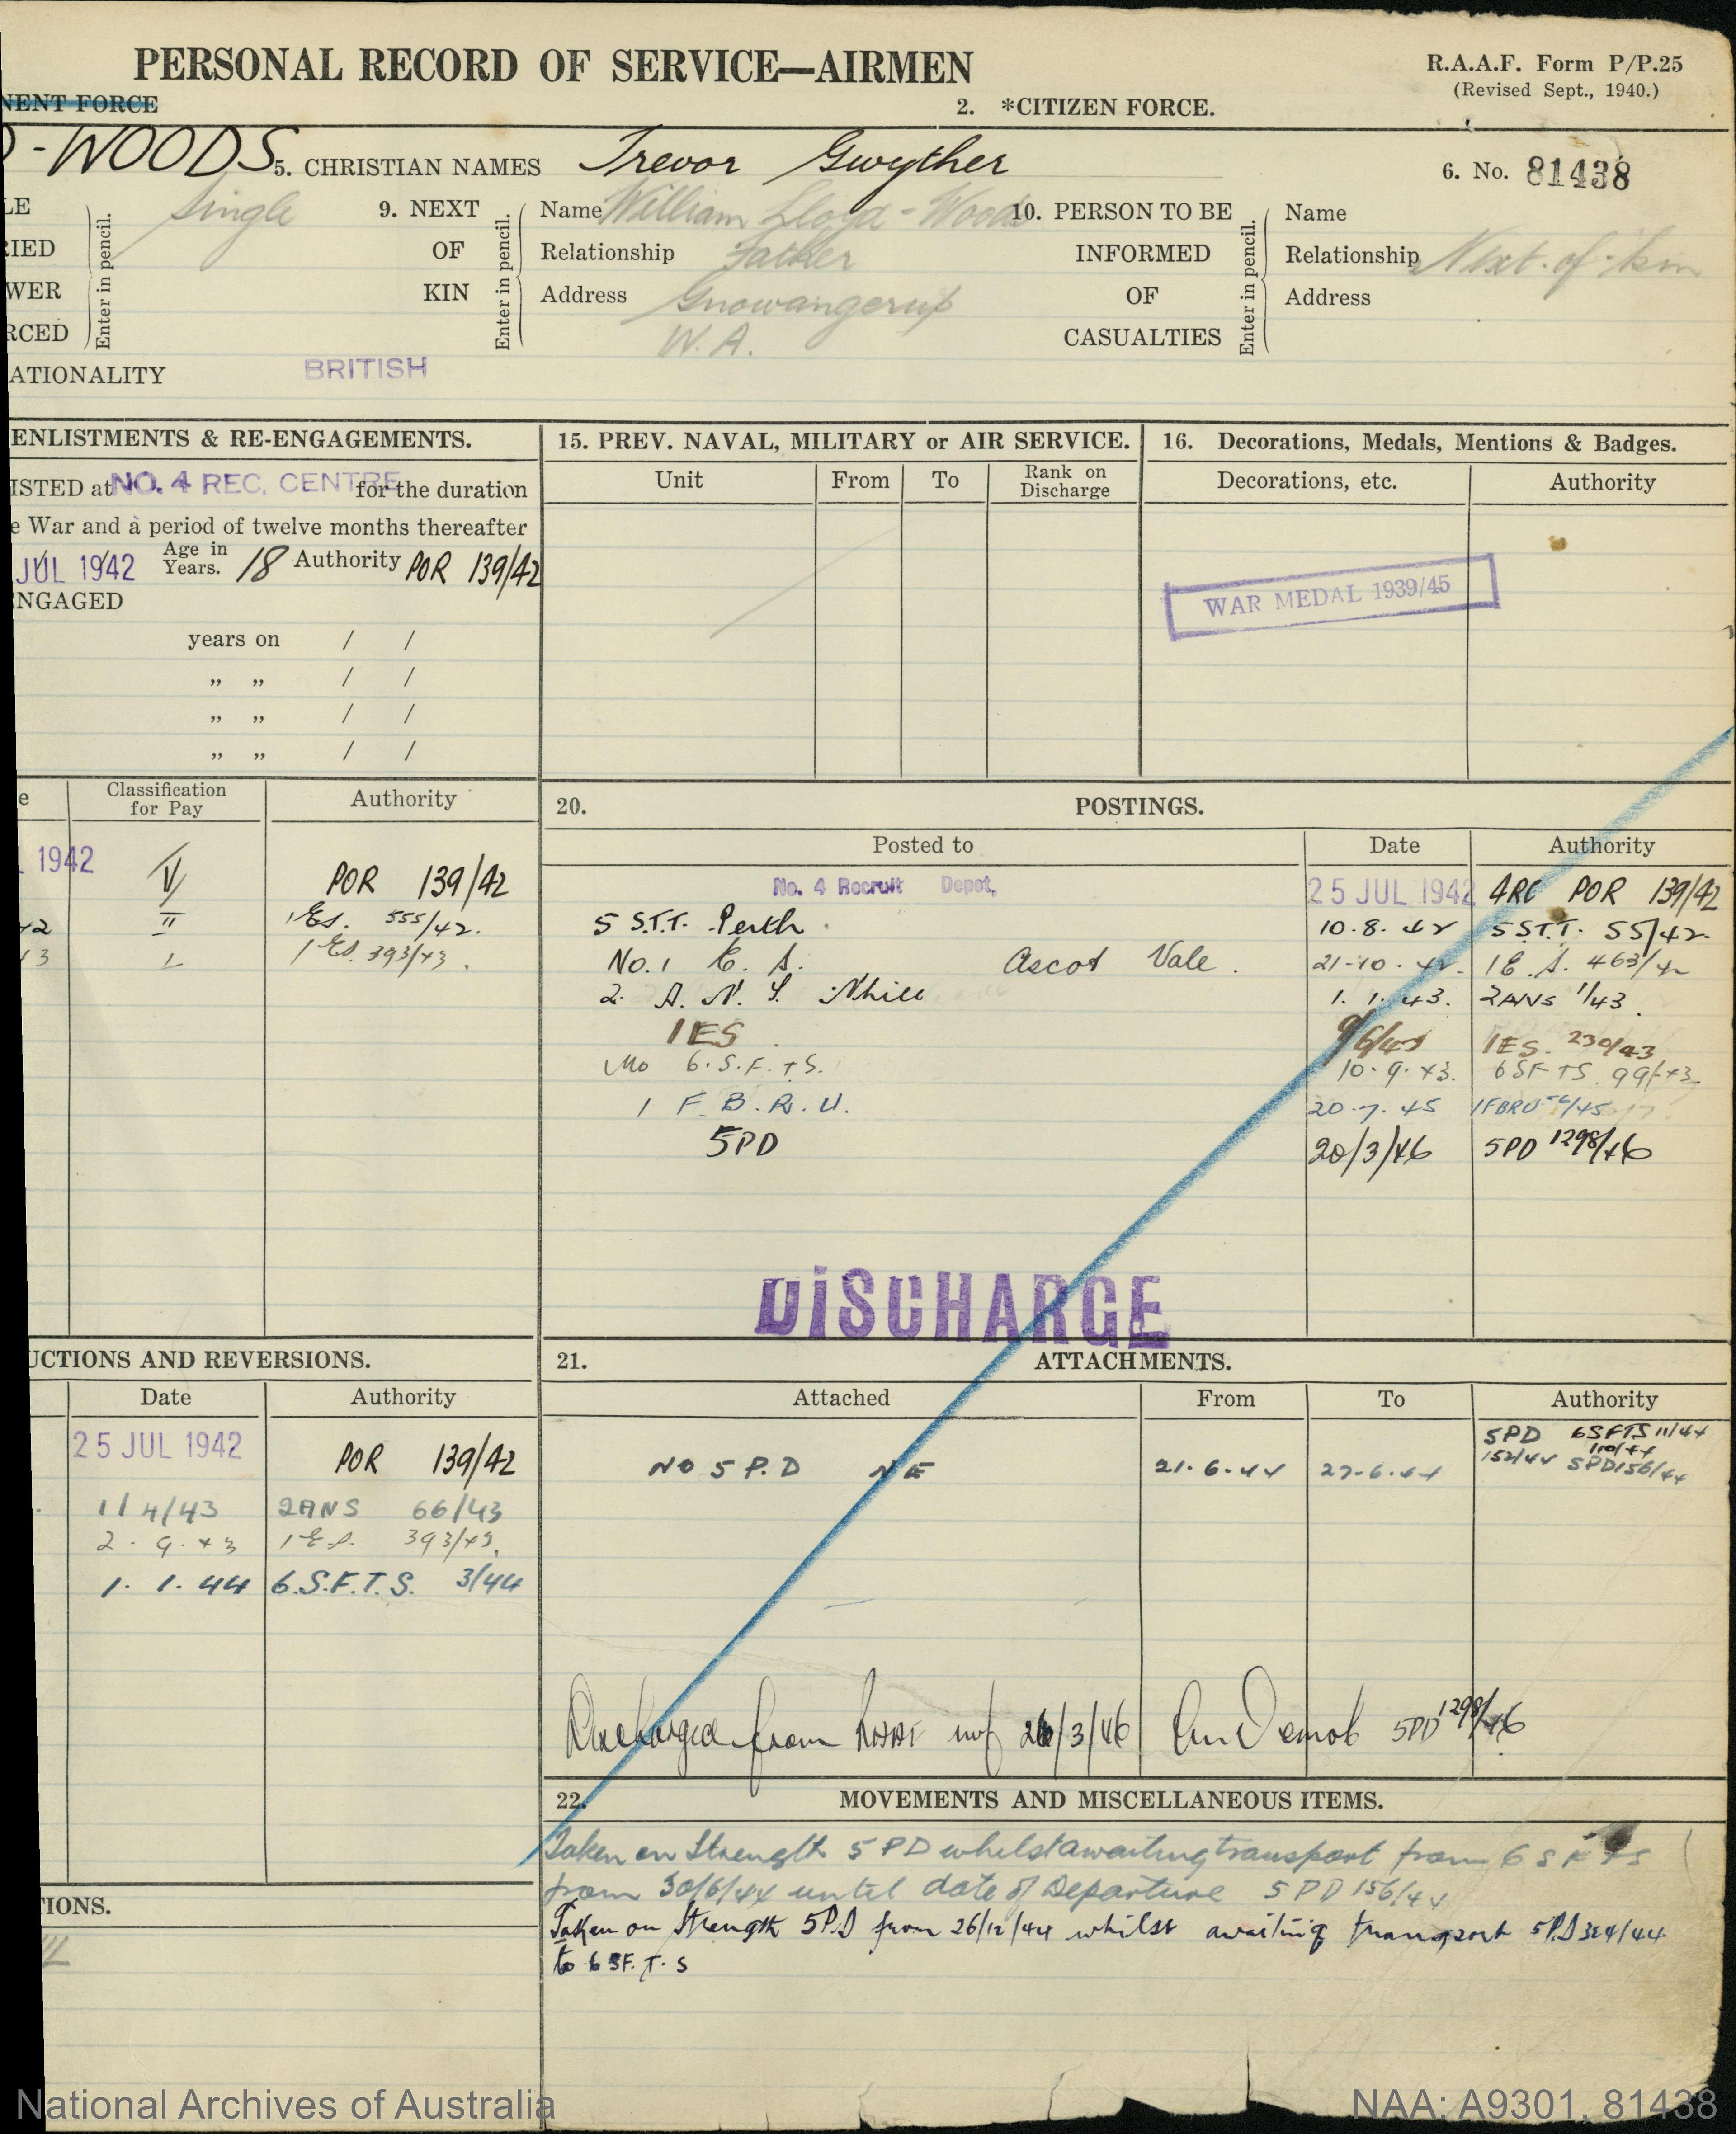 PERSONAL RECORD OF SERVICE—AIRMEN
R.A.A.F. Form P/P.25
(Revised Sept., 1940.)
NENT FORCE
2. *CITIZEN FORCE.
D-WOODS
5. CHRISTIAN NAMES Trevor Gwyther
6. No. 81438
LE
RIED
WER
RCED
Enter in pencil.
Single
9. NEXT OF KIN
Enter in pencil.
Name William Lloyd-Woods
Relationship Father
Address Gnowangerup
W.A.
10. PERSON TO BE INFORMED OF CASUALTIES
Enter in pencil.
Name
Relationship Next-of-kin
Address
ATIONALITY BRITISH
ENLISTMENTS & RE-ENGAGEMENTS.
ISTED at NO. 4 REC. CENTRE for the duration
e War and a period of twelve months thereafter
JUL 1942 Age in Years. 18 Authority POR 139/42
NGAGED
years on / /
" " / /
" " / /
" " / /
15. PREV. NAVAL, MILITARY or AIR SERVICE.
Unit From To Rank on Discharge
16. Decorations, Medals, Mentions & Badges.
Decorations, etc. Authority
WAR MEDAL 1939/45
e Classification for Pay Authority
1942 V POR 139/42
42 II 1ES. 555/42.
13 I 1 ES 393/43.
20. POSTINGS.
Posted to Date Authority
No. 4 Recruit Depot, 25 JUL 1942 4RC POR 139/42
5 S.T.T. Perth 10.8.42 5 S.T.T. 55/42.
No. 1 E. S. Ascot Vale. 21-10.42. 1 E. S. 463/42
2 A. N. S. Nhill 1. 1. 43. 2ANS 1/43.
1ES 9/6/43 1ES. 230/43
No 6.S.F.T.S. 10.9.43. 6 SFTS 99/43
1 F.B.R.U. 20.7.45 1FBRU /45
5PD 20/3/46 5PD 1298/46
DISCHARGE
UCTIONS AND REVERSIONS.
Date Authority
25 JUL 1942 POR 139/42
1/4/43 2ANS 66/43
2.9.43 1 E.S. 393/43.
1.1.44 6.S.F.T.S. 3/44
21. ATTACHMENTS.
Attached From To Authority
NO 5 P.D NE 21.6.44 27.6.44 5PD 6SFTS 11/44
110/44
152/44 5PD 156/44
Discharged from RAAF 26/3/46 on Demob 5PD 1298/46
22. MOVEMENTS AND MISCELLANEOUS ITEMS.
Taken on Strength 5 PD whilst awaiting transport from 6 SFTS
from 30/6/44 until date of Departure 5 PD 156/44
Taken on Strength 5P.D from 26/12/44 whilst awaiting transport 5P.D 324/44
to 6 S.F.T.S
TIONS.
National Archives of Australia
NAA: A9301, 81438